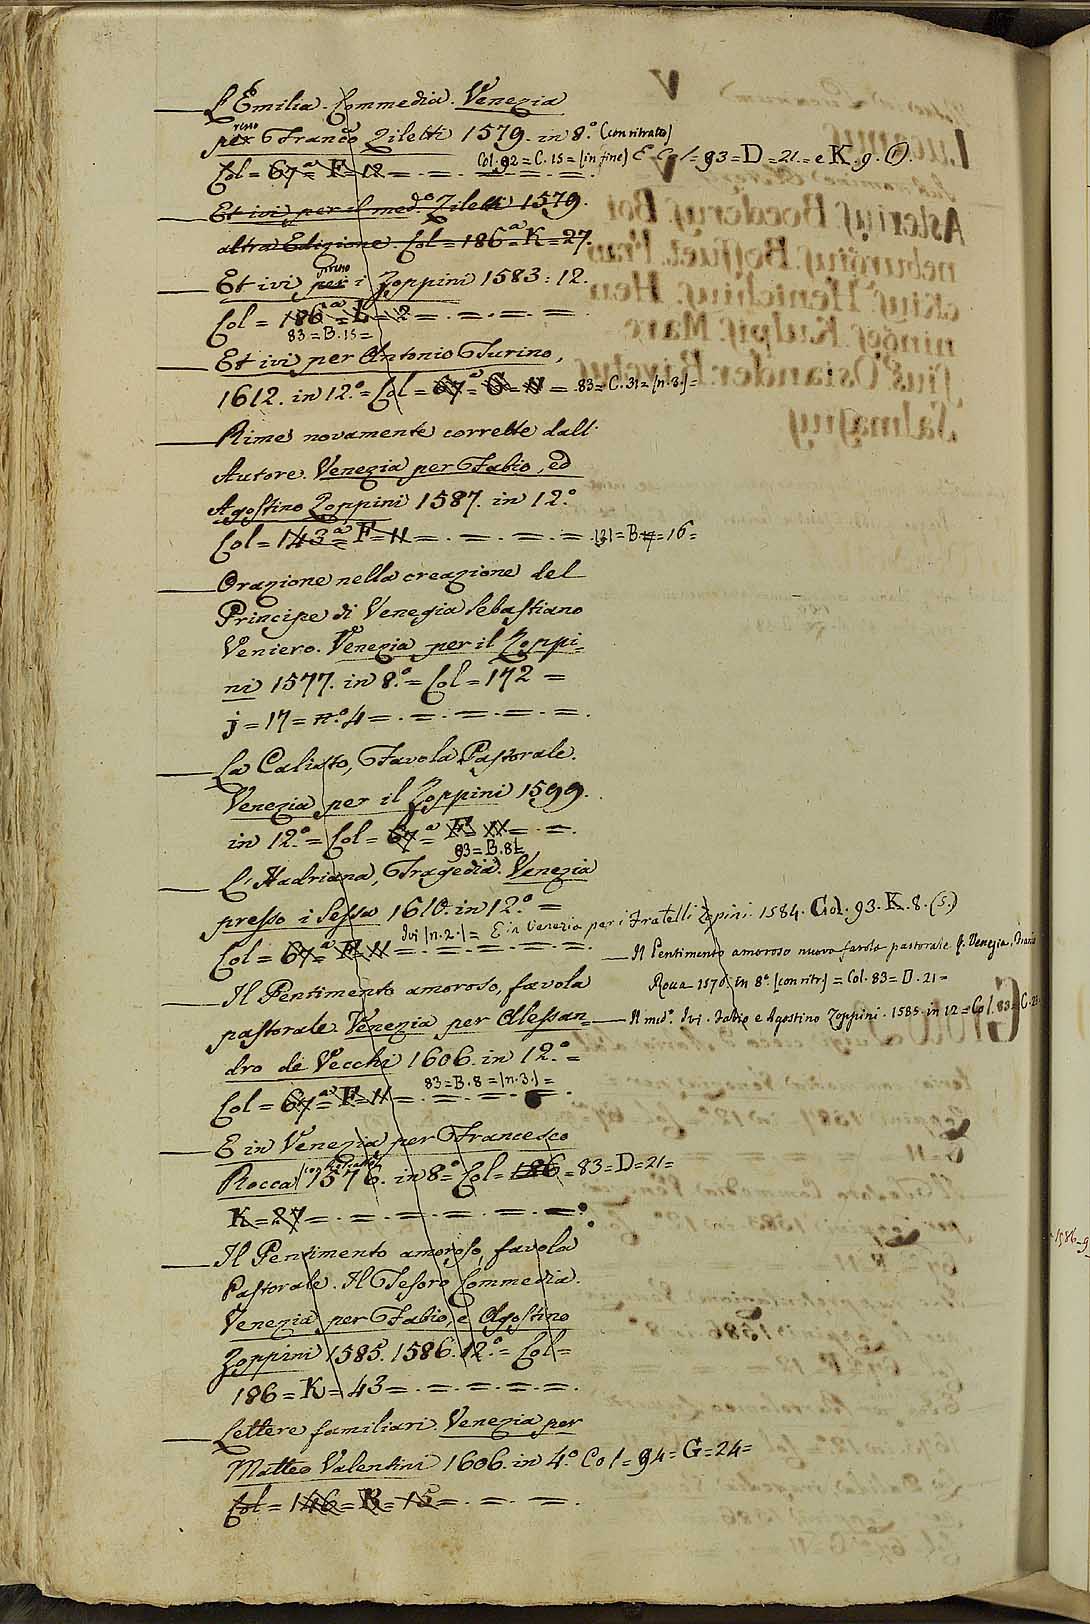 L'Emilia. Commedia. Venezia
presso Franco Ziletti 1579. in 8.° (con ritratto)
Col. 92 = C. 15 = (in fine) E Col = 93 = D = 21 = e K. 9. (1).
Col = 67 = F = 12 = . = . = . = . = .
Et ivi per il med.° Ziletti 1579.
altra Edizione. Col = 186 = K = 27.
Et ivi presso i Zoppini 1583 : 12.
Col = 186 = L = 2 = . = . = . = . = .
83 = B. 15 =
Et ivi per Antonio Turino,
1612. in 12.° = Col = 67 = G = 11 = 83 = C. 31 = (n. 3.) =
Rime novamente corrette dall'
Autore. Venezia per Fabio, ed
Agostino Zoppini 1587. in 12.°
Col = 143 = F = 11 = . = . = . = . = 131 = B = 16 =
Orazione nella creazione del
Principe di Venezia Sebastiano
Veniero. Venezia per il Zoppi=
ni 1577. in 8.° = Col = 172 =
j = 17 = n.° 4 = . = . = . = . = .
La Calisto, Favola Pastorale.
Venezia per il Zoppini 1599.
in 12.° = Col = 67 = F = 11 = . = .
93 = B. 8
L'Hadriana, Tragedia. Venezia
presso i Sessa 1610. in 12.° =
Ivi (n. 2.) = E in Venezia per i Fratelli Zopini. 1584. Col. 93. K. 8. (5.)
Col = 67 = F = 11 = . = . = . = . = .
Il Pentimento amoroso nuova favola pastorale p. Venezia,
Il Pentimento amoroso, favola
Roca 1576 in 8.° (con ritr.) = Col. 83 = D. 21 =
pastorale. Venezia per Alessan=
Il med.° Ivi. Fabio e Agostino Zoppini. 1585. in 12 = Col. 83 = C.
dro de Vecchi 1606. in 12.° =
83 = B. 8 = (n. 3.) =
Col = 67 = F = 11 = . = . = . = . = .
E in Venezia per Francesco
Rocca (con ritratto) 1576. in 8.° Col = 186 = 83 = D = 21 =
K = 27 = . = . = . = . = .
Il Pentimento amoroso, favola
Pastorale. Il Tesoro Commedia.
Venezia per Fabio, e Agostino
Zoppini 1585. 1586. 12.° = Col =
186 = K = 43 = . = . = . = . = .
Lettere familiari. Venezia per
Matteo Valentini 1606. in 4.° Col = 94 = G = 24 =
Col = 146 = B = 15 = . = . = . = .